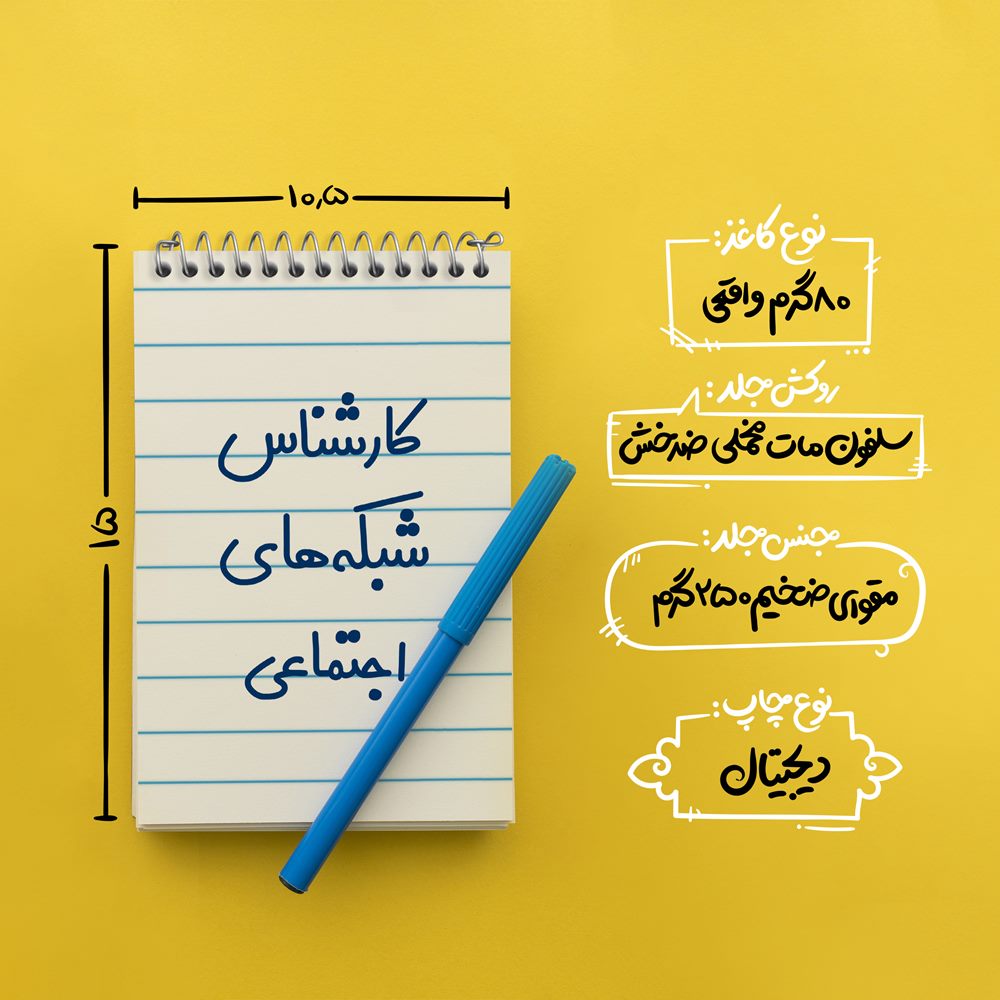 ۱۰٫۵
۱۵
کارشناس
شبکه‌های
اجتماعی
نوع کاغذ:
۸۰ گرم واقعی
روکش جلد:
سلفون مات مخملی ضدخش
جنس جلد:
مقوای ضخیم ۲۵۰ گرم
نوع چاپ:
دیجیتال